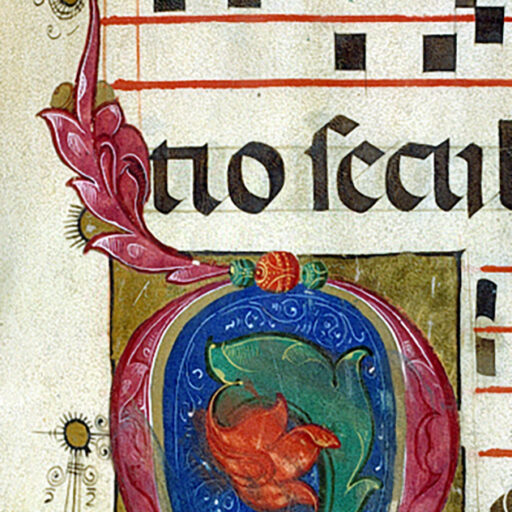 tio secul